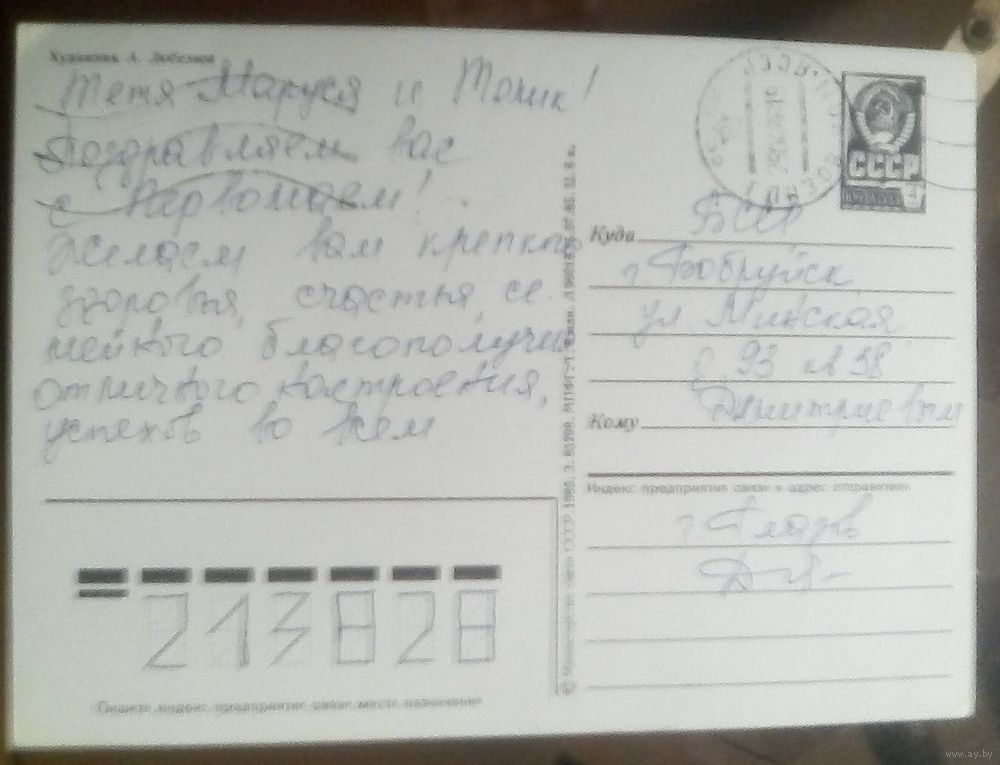 Художник А. Любезнов
Тетя Маруся и Толик!
Поздравляем вас
с Первомаем!
Желаем вам крепкого
здоровья, счастья, се-
мейного благополучия
отличного настроения,
успехов во всем
СССР
Куда БССР
г Бобруйск
ул Минская
д 93 кв 38
Кому Дмитриевым
Индекс предприятия связи и адрес отправителя
г Глазов
213828
Пишите индекс предприятия связи места назначения
© Министерство связи СССР 1985.
www.ay.by